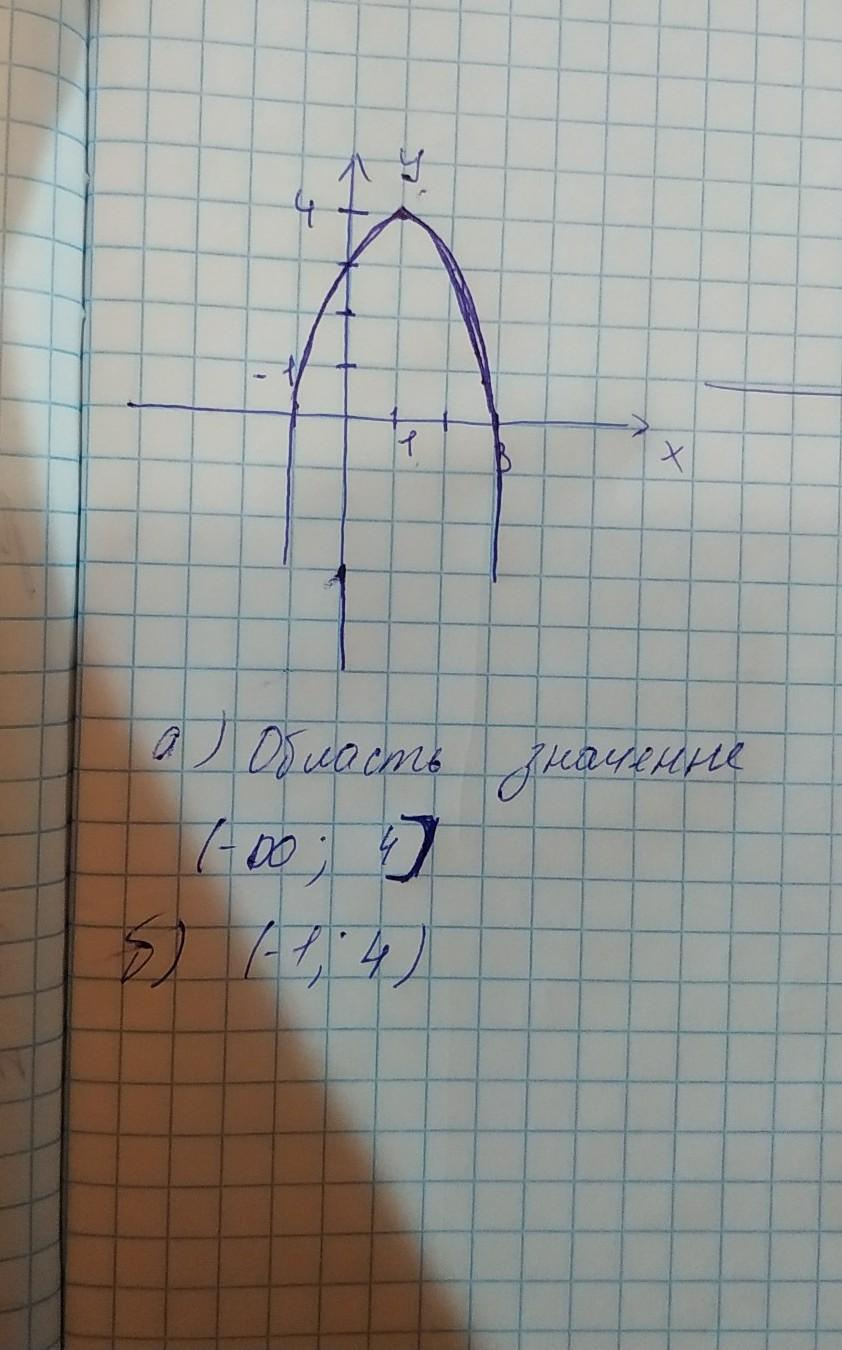 у
4
-1
1
3
х
а) Область значение
(-∞; 4]
б) (-1; 4)